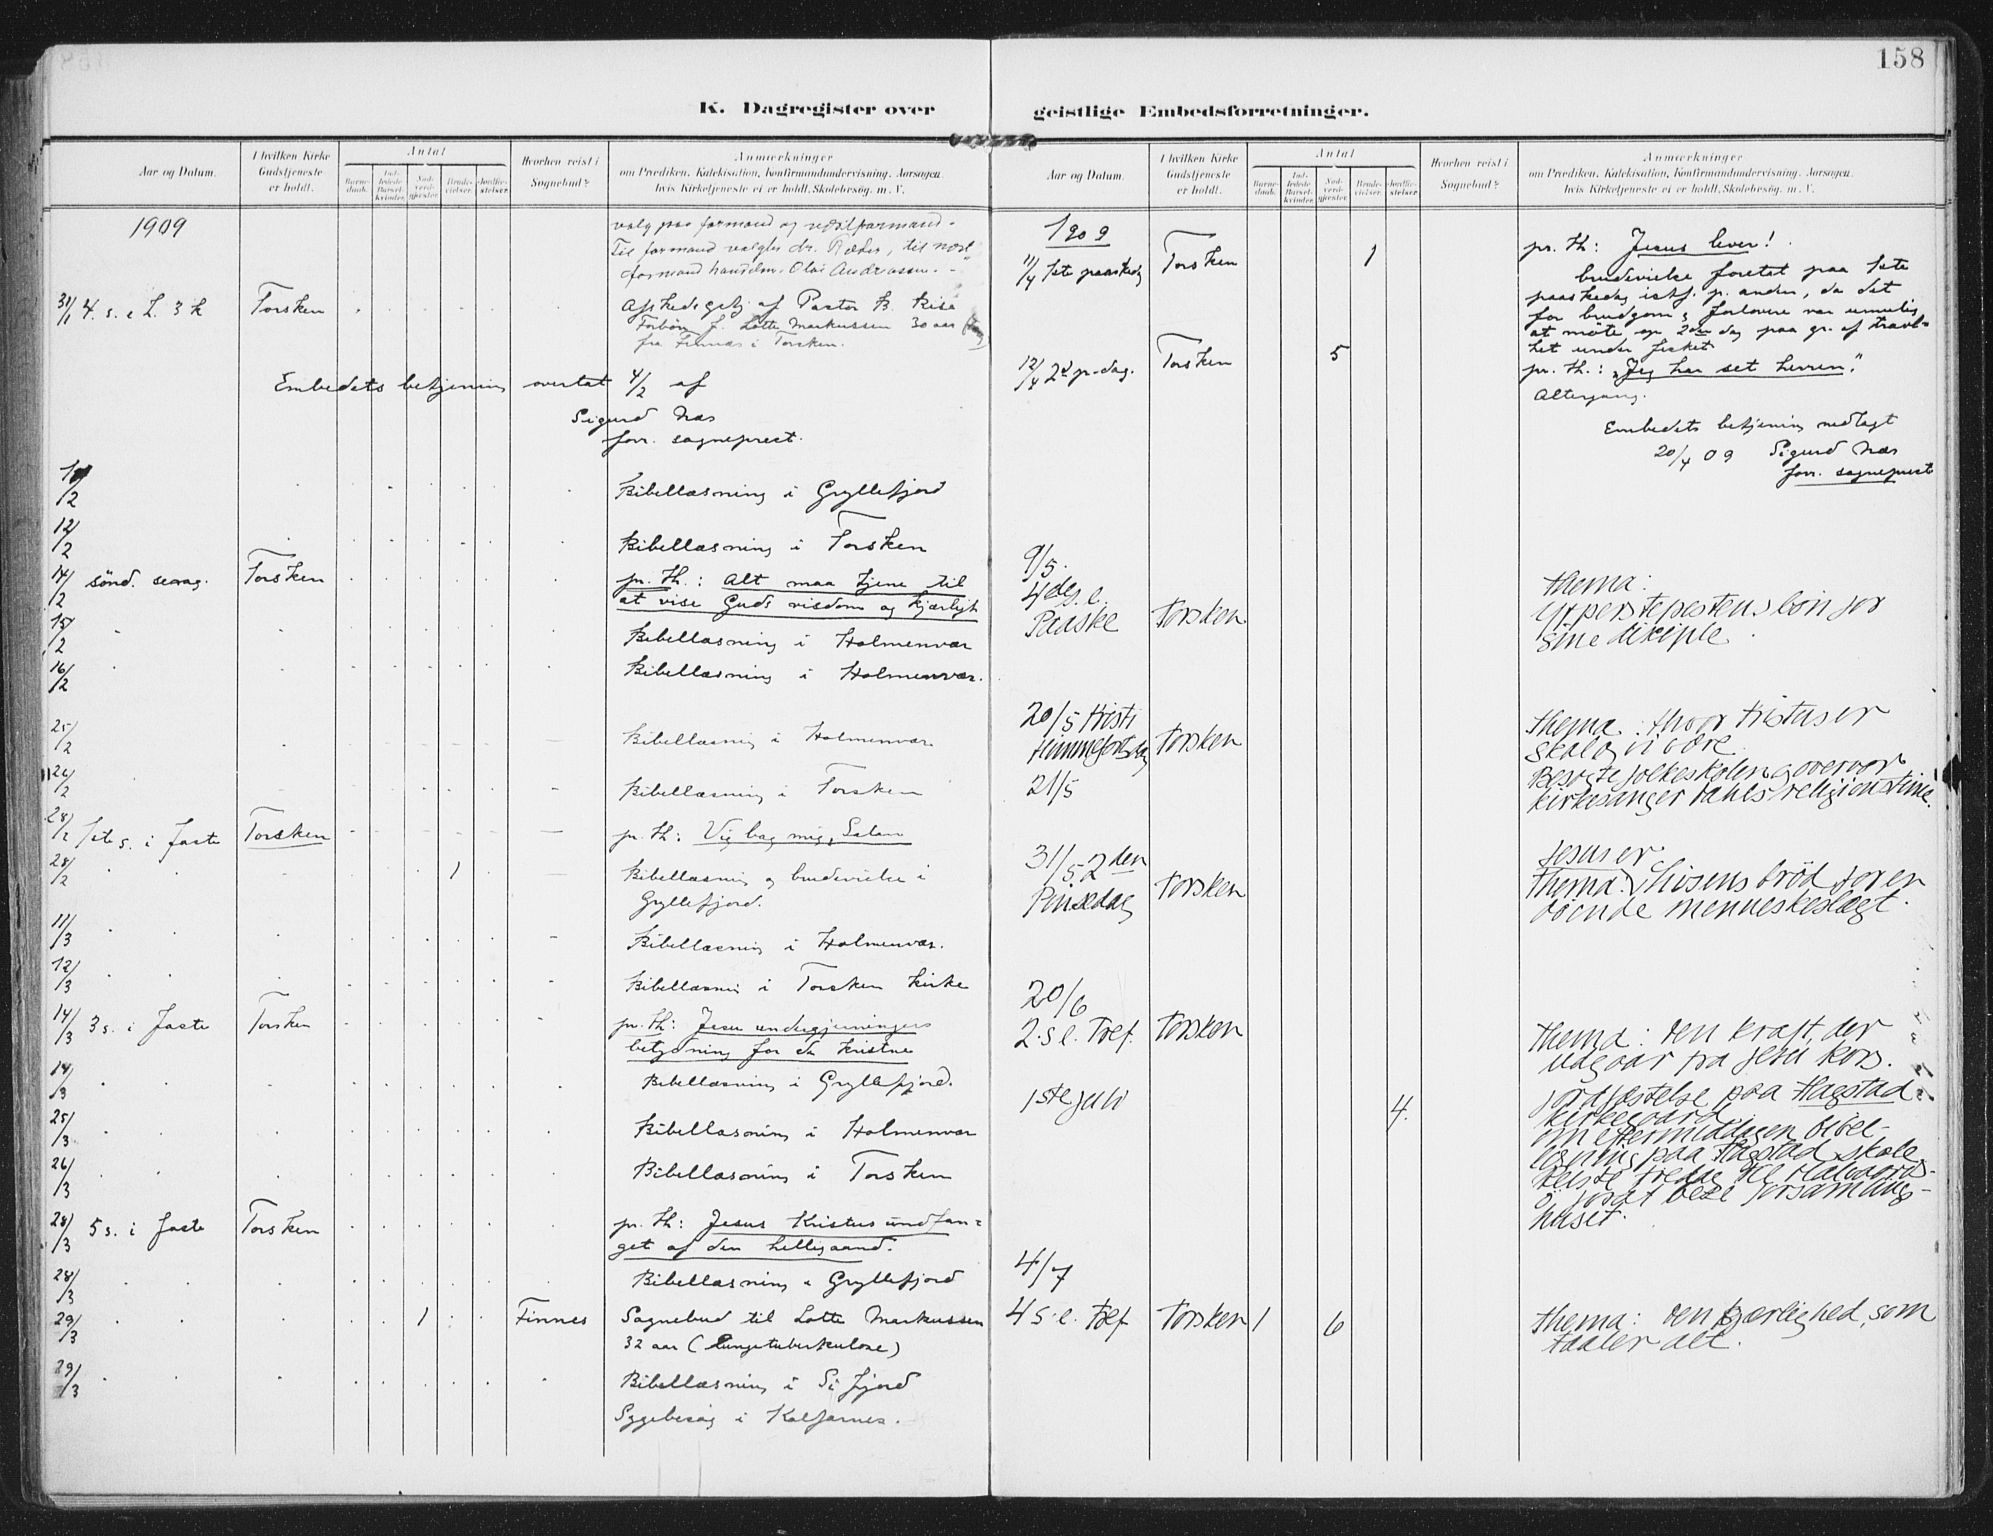 158
K. Dagregister over geistlige Embedsforretninger.
Aar og Datum.
I hvilken Kirke Gudstjeneste er holdt.
Antal
Barnedaab.
Indledede Barselkvinder.
Nadverdgjester.
Brudevielser.
Jordfæstelser.
Hvorhen reist i Sognebud?
Anmærkninger
om Prædiken, Katekisation, Konfirmandundervisning, Aarsagen,
hvis Kirketjeneste ei er holdt, Skolebesøg, m. V.
1909
valg paa formand og
Til formand valgtes dr. , til næst
formand Olai Andreassen.
31/1 4. s. e. h. 3 k Torsken
Afskeds af Pastor B.
Forbøn f. Lotte Markussen 30 aar
fra Finnæs i Torsken.
Embedets betjening overtat 4/2 af
Sigurd Næs
forr. sogneprest.
/2 Bibellæsning i Gryllefjord
12/2 Bibellæsning i Torsken
14/2 sønd. Torsken pr. th.: Alt maa tjene til
at vise Guds visdom og kjærligh
15/2 Bibellæsning i Holmenvær
16/2 Bibellæsning i Holmenvær.
25/2 Bibellæsning i Holmenvær
26/2 Bibellæsning i Torsken
28/2 1ste s. i faste Torsken pr. th: Vig bag mig, Satan
28/2 1 Bibellæsning og brudevielse i
Gryllefjord.
11/3 Bibellæsning i Holmenvær.
12/3 Bibellæsning i Torsken kirke
14/3 3 s. i faste Torsken pr. th: Jesu undergjerningers
betydning for de kristne
14/3 Bibellæsning i Gryllefjord.
25/3 Bibellæsning i Holmenvær
26/3 Bibellæsning i Torsken
28/3 5 s. i faste Torsken pr. th: Jesus Kristus undfan=
get af den helligaand.
28/3 Bibellæsning i Gryllefjord
29/3 1 Finnes Sognebud til Lotte Markussen
32 aar (Lungetuberkulose)
29/3 Bibellæsning i Sifjord
Sygebesøg i Kalfarnes.
Aar og Datum.
I hvilken Kirke Gudstjeneste er holdt.
Antal
Barnedaab.
Indledede Barselkvinder.
Nadverdgjester.
Brudevielser.
Jordfæstelser.
Hvorhen reist i Sognebud?
Anmærkninger
om Prædiken, Katekisation, Konfirmandundervisning, Aarsagen,
hvis Kirketjeneste ei er holdt, Skolebesøg, m. V.
1909
11/4 1ste paaskedag Torsken 1 pr. th: Jesus lever!
brudevielse foretat paa 1ste
paaskedag istf. p. anden, da det
for brudgom og forlovere var umulig
at møte op 2den dag paa gr. af travl=
het under fisket
12/4 2d p-dag. Torsken 5 pr. th.: "Jeg har set herren".
Altergang.
Embedets betjening nedlagt
20/4 09 Sigurd Næs
forr. sogneprest
9/5.
4de s. e.
Paaske Torsken
Thema:
Ypperstepræstens bøn for
sine disciple.
20/5 Kristi
Himmelfartsdag Torsken
Thema: Hvor Kristus er
skal og vi være.
21/5 Besøgte folkeskolen og overvar
kirkesanger Dahls religionstime.
31/5 2den
Pinsedag Torsken
Jesus er
Thema: livsens brød for en
døende menneskeslægt.
20/6
2. s. e. Tref. Torsken
Thema: Den kraft, der
udgaar fra Jesu kors.
1ste juli 4.
Jordfæstelse paa Hagstad
kirkegaard.
Om eftermiddagen bibel-
læsning paa Hagstad skole.
huset.
4/7
4 s. e. Tref Torsken 1 6
Thema: Den kjærlighed, som
taaler alt.